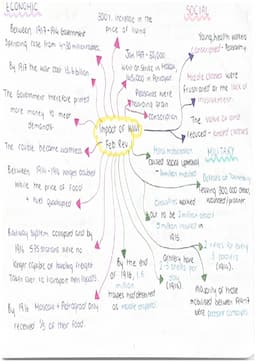 ECONOMIC
Between 1917-1914 Government
spending rose from 4-30 million roubles.
By 1917 the war cost 1.5 billion
The Government therefore printed
more money to meet
demands.
The rouble became worthless
Between 1914-1916 wages doubled
while the price of food
+ fuel quadrupled
Railway system occupied and by
1916 575 stations were no
longer capable of handling freight
By 1916 Moscow + Petrograd only
received 1/3 of their food.
300% increase in the
price of living
Jan 1917 - 30,000
were on strike in Moscow,
145,000 in Petrograd.
Peasants were
hoarding grain
conscription
Impact of WW1
Feb Rev
SOCIAL
Young, healthy works
conscripted - Economy
Middle classes were
frustrated at the lack of
involvement.
The value of land
reduced - landed classes
MILITARY
Mass mobilisation
caused social upheaval
Defeats at Tannenberg
leaving 300,000 dead,
wounded/prisoner
Casualties worked
out to be 2 million dead
5 million injured in
1916.
2 rifles for every
3 soldiers
(1914).
Artillery have
2-3 shells per
day
(1916)
By the end
of 1916, 1.5
million
troops had deserted
Majority of those
mobilised between 1914-17
were peasant conscripts